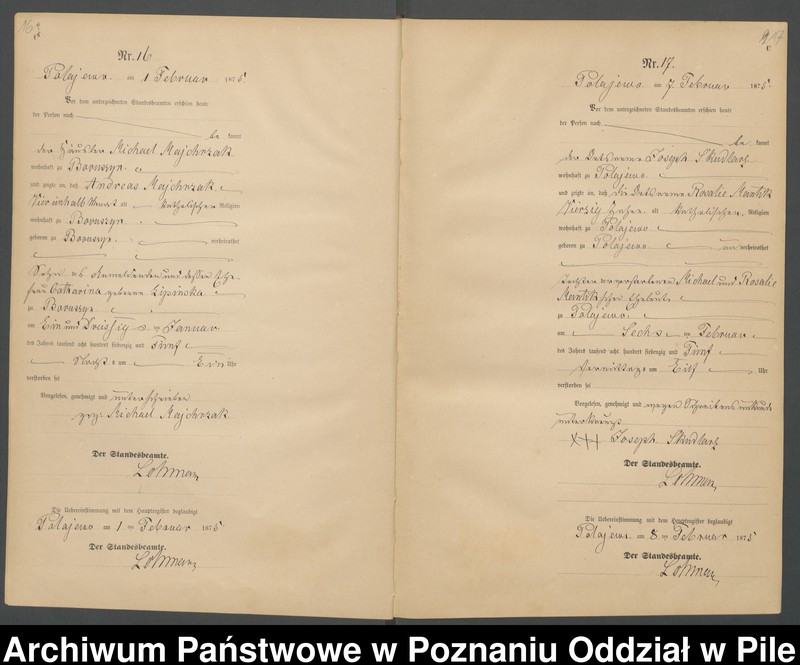 Nr. 16
Polajewo am 1 Februar 1875
Vor dem unterzeichneten Standesbeamten erschien heute
der Person nach
be kannt
der Häusler Michael Majchrzak
wohnhaft zu Boruszyn
und zeigte an, daß Andreas Majchrzak
Vier einhalb Monat alt katholischer Religion
wohnhaft zu Boruszyn
geboren zu Boruszyn verheirathet
Sohn des Anmeldenden und dessen Ehe
frau Catharina geborene Lipinska
zu Boruszyn
am Ein und Dreißig sten Januar
des Jahres tausend acht hundert siebenzig und Fünf
Nachts um Ein Uhr
verstorben sei
Vorgelesen, genehmigt und unterschrieben
gez. Michael Majchrzak
Der Standesbeamte.
Lohmann
Die Uebereinstimmung mit dem Hauptregister beglaubigt
Polajewo am 1 ten Februar 1875
Der Standesbeamte.
Lohmann
17
Nr. 17.
Polajewo am 7 Februar 1875
Vor dem unterzeichneten Standesbeamten erschien heute
der Person nach
be kannt
der Ortsarme Joseph Skudlarz
wohnhaft zu Polajewo
und zeigte an, daß die Ortsarme Rosalie
Vierzig Jahre alt katholischer Religion
wohnhaft zu Polajewo
geboren zu Polajewo un verheirathet
Tochter der verstorbenen Michael und Rosalie
Eheleute
zu Polajewo
am Sechs ten Februar
des Jahres tausend acht hundert siebenzig und Fünf
Vormittags um Elf Uhr
verstorben sei
Vorgelesen, genehmigt und wegen Schreibens unkunde
unterkreuzt
XXX Joseph Skudlarz
Der Standesbeamte.
Lohmann
Die Uebereinstimmung mit dem Hauptregister beglaubigt
Polajewo am 8 ten Februar 1875
Der Standesbeamte.
Lohmann
Archiwum Państwowe w Poznaniu Oddział w Pile